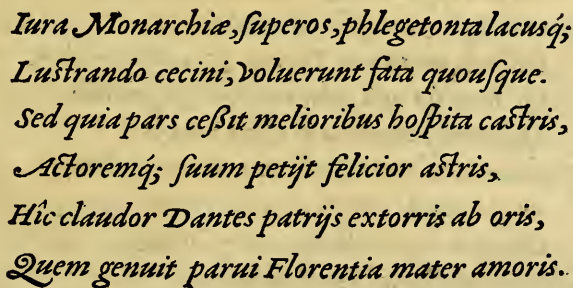 Iura Monarchiæ, ſuperos, phlegetonta lacusq́;
Luſtrando cecini, voluerunt fata quouſque.
Sed quia pars ceßit melioribus hoſpita caſtris,
Actoremq́; ſuum petijt felicior aſtris,
Hîc claudor Dantes patrijs extorris ab oris,
Quem genuit parui Florentia mater amoris.